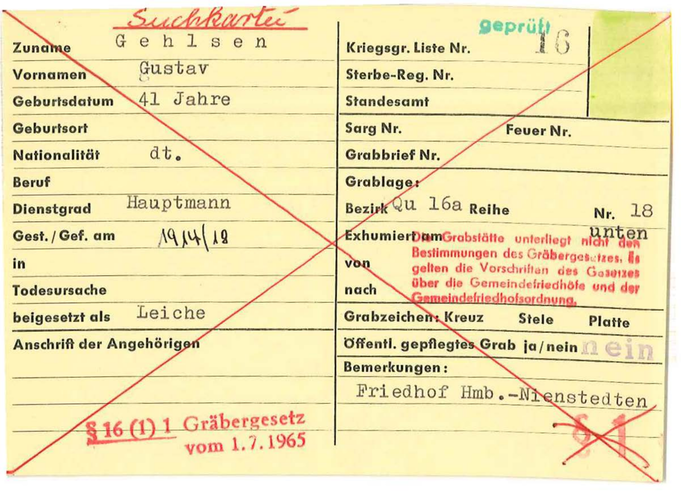 Suchkartei
Zuname Gehlsen
Vornamen Gustav
Geburtsdatum 41 Jahre
Geburtsort
Nationalität dt.
Beruf
Dienstgrad Hauptmann
Gest./Gef. am 1914/18
in
Todesursache
beigesetzt als Leiche
Anschrift der Angehörigen
§ 16 (1) 1 Gräbergesetz
vom 1.7.1965
geprüft
Kriegsgr. Liste Nr. 16
Sterbe-Reg. Nr.
Standesamt
Sarg Nr. Feuer Nr.
Grabbrief Nr.
Grablage:
Bezirk Qu 16a Reihe Nr. 18
unten
Exhumiert am
von
nach
Die Grabstätte unterliegt nicht den
Bestimmungen des Gräbergesetzes. Es
gelten die Vorschriften des Gesetzes
über die Gemeindefriedhöfe und der
Gemeindefriedhofsordnung.
Grabzeichen: Kreuz Stele Platte
Öffentl. gepflegtes Grab ja/nein nein
Bemerkungen:
Friedhof Hmb.-Nienstedten
§ 1